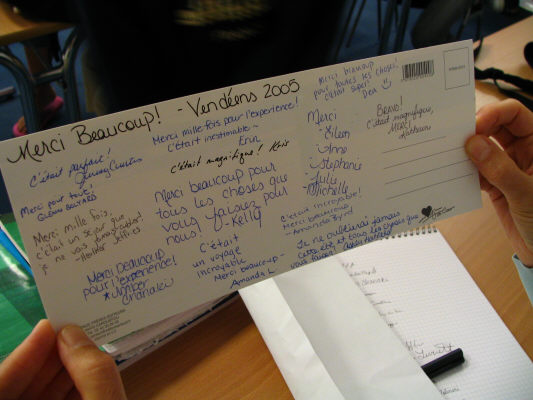 Merci Beaucoup! - Vendéens 2005
C'était parfait!
Merci pour tout!
Merci mille fois,
c'était un séjour que
je ne vais jamais oublier!
- Heather Jeffries
Merci beaucoup
pour l'expérience!
Amber
Merci mille fois pour l'expérience!
C'était inestimable ~
Erin
C'était magnifique! Kris
Merci beaucoup pour
tous les choses que
vous faisiez pour
nous! - Kelly
C'était
un voyage
incroyable
Merci beaucoup -
Amanda L.
Merci beaucoup
pour toutes les choses!
C'était super!
Merci
- Eileen
- Anne
- Stephanie
- Julie
- Michelle
Bravo!
C'était magnifique,
MERCI,
Kathleen
C'était incroyable!
Merci beaucoup
- Amanda Byrd
Je ne oublierai jamais
cette été et tous les choses que
vous